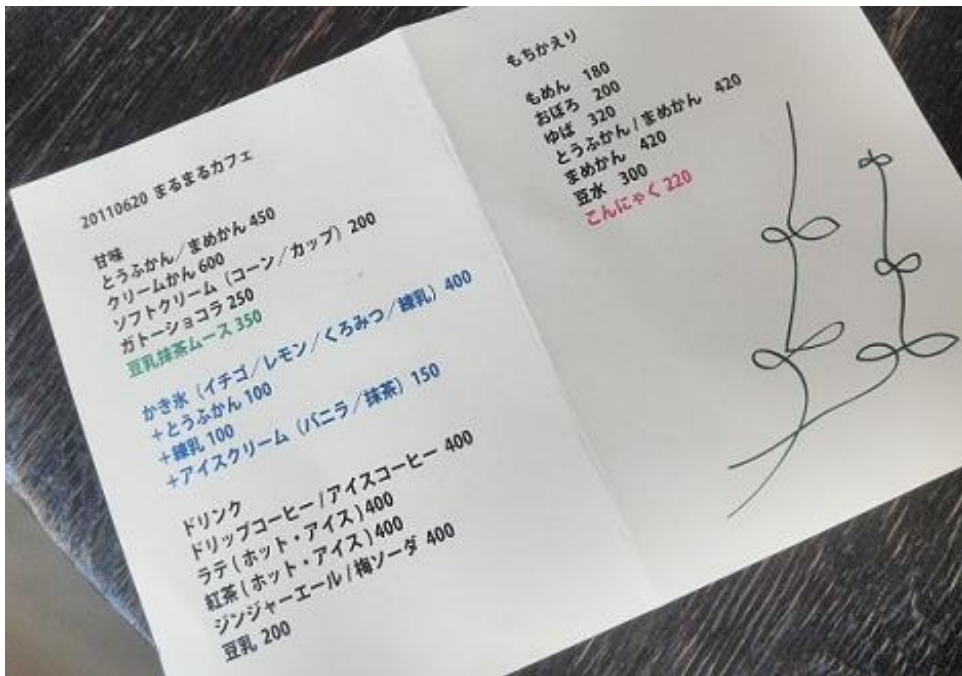 20110620 まるまるカフェ
甘味
とうふかん／まめかん 450
クリームかん 600
ソフトクリーム（コーン／カップ）200
ガトーショコラ 250
豆乳抹茶ムース 350
かき氷（イチゴ／レモン／くろみつ／練乳）400
+とうふかん 100
+練乳 100
+アイスクリーム（バニラ／抹茶）150
ドリンク
ドリップコーヒー/アイスコーヒー 400
ラテ(ホット・アイス)400
紅茶(ホット・アイス)400
ジンジャーエール/梅ソーダ 400
豆乳 200
もちかえり
もめん 180
おぼろ 200
ゆば 320
とうふかん/まめかん 420
まめかん 420
豆水 300
こんにゃく 220